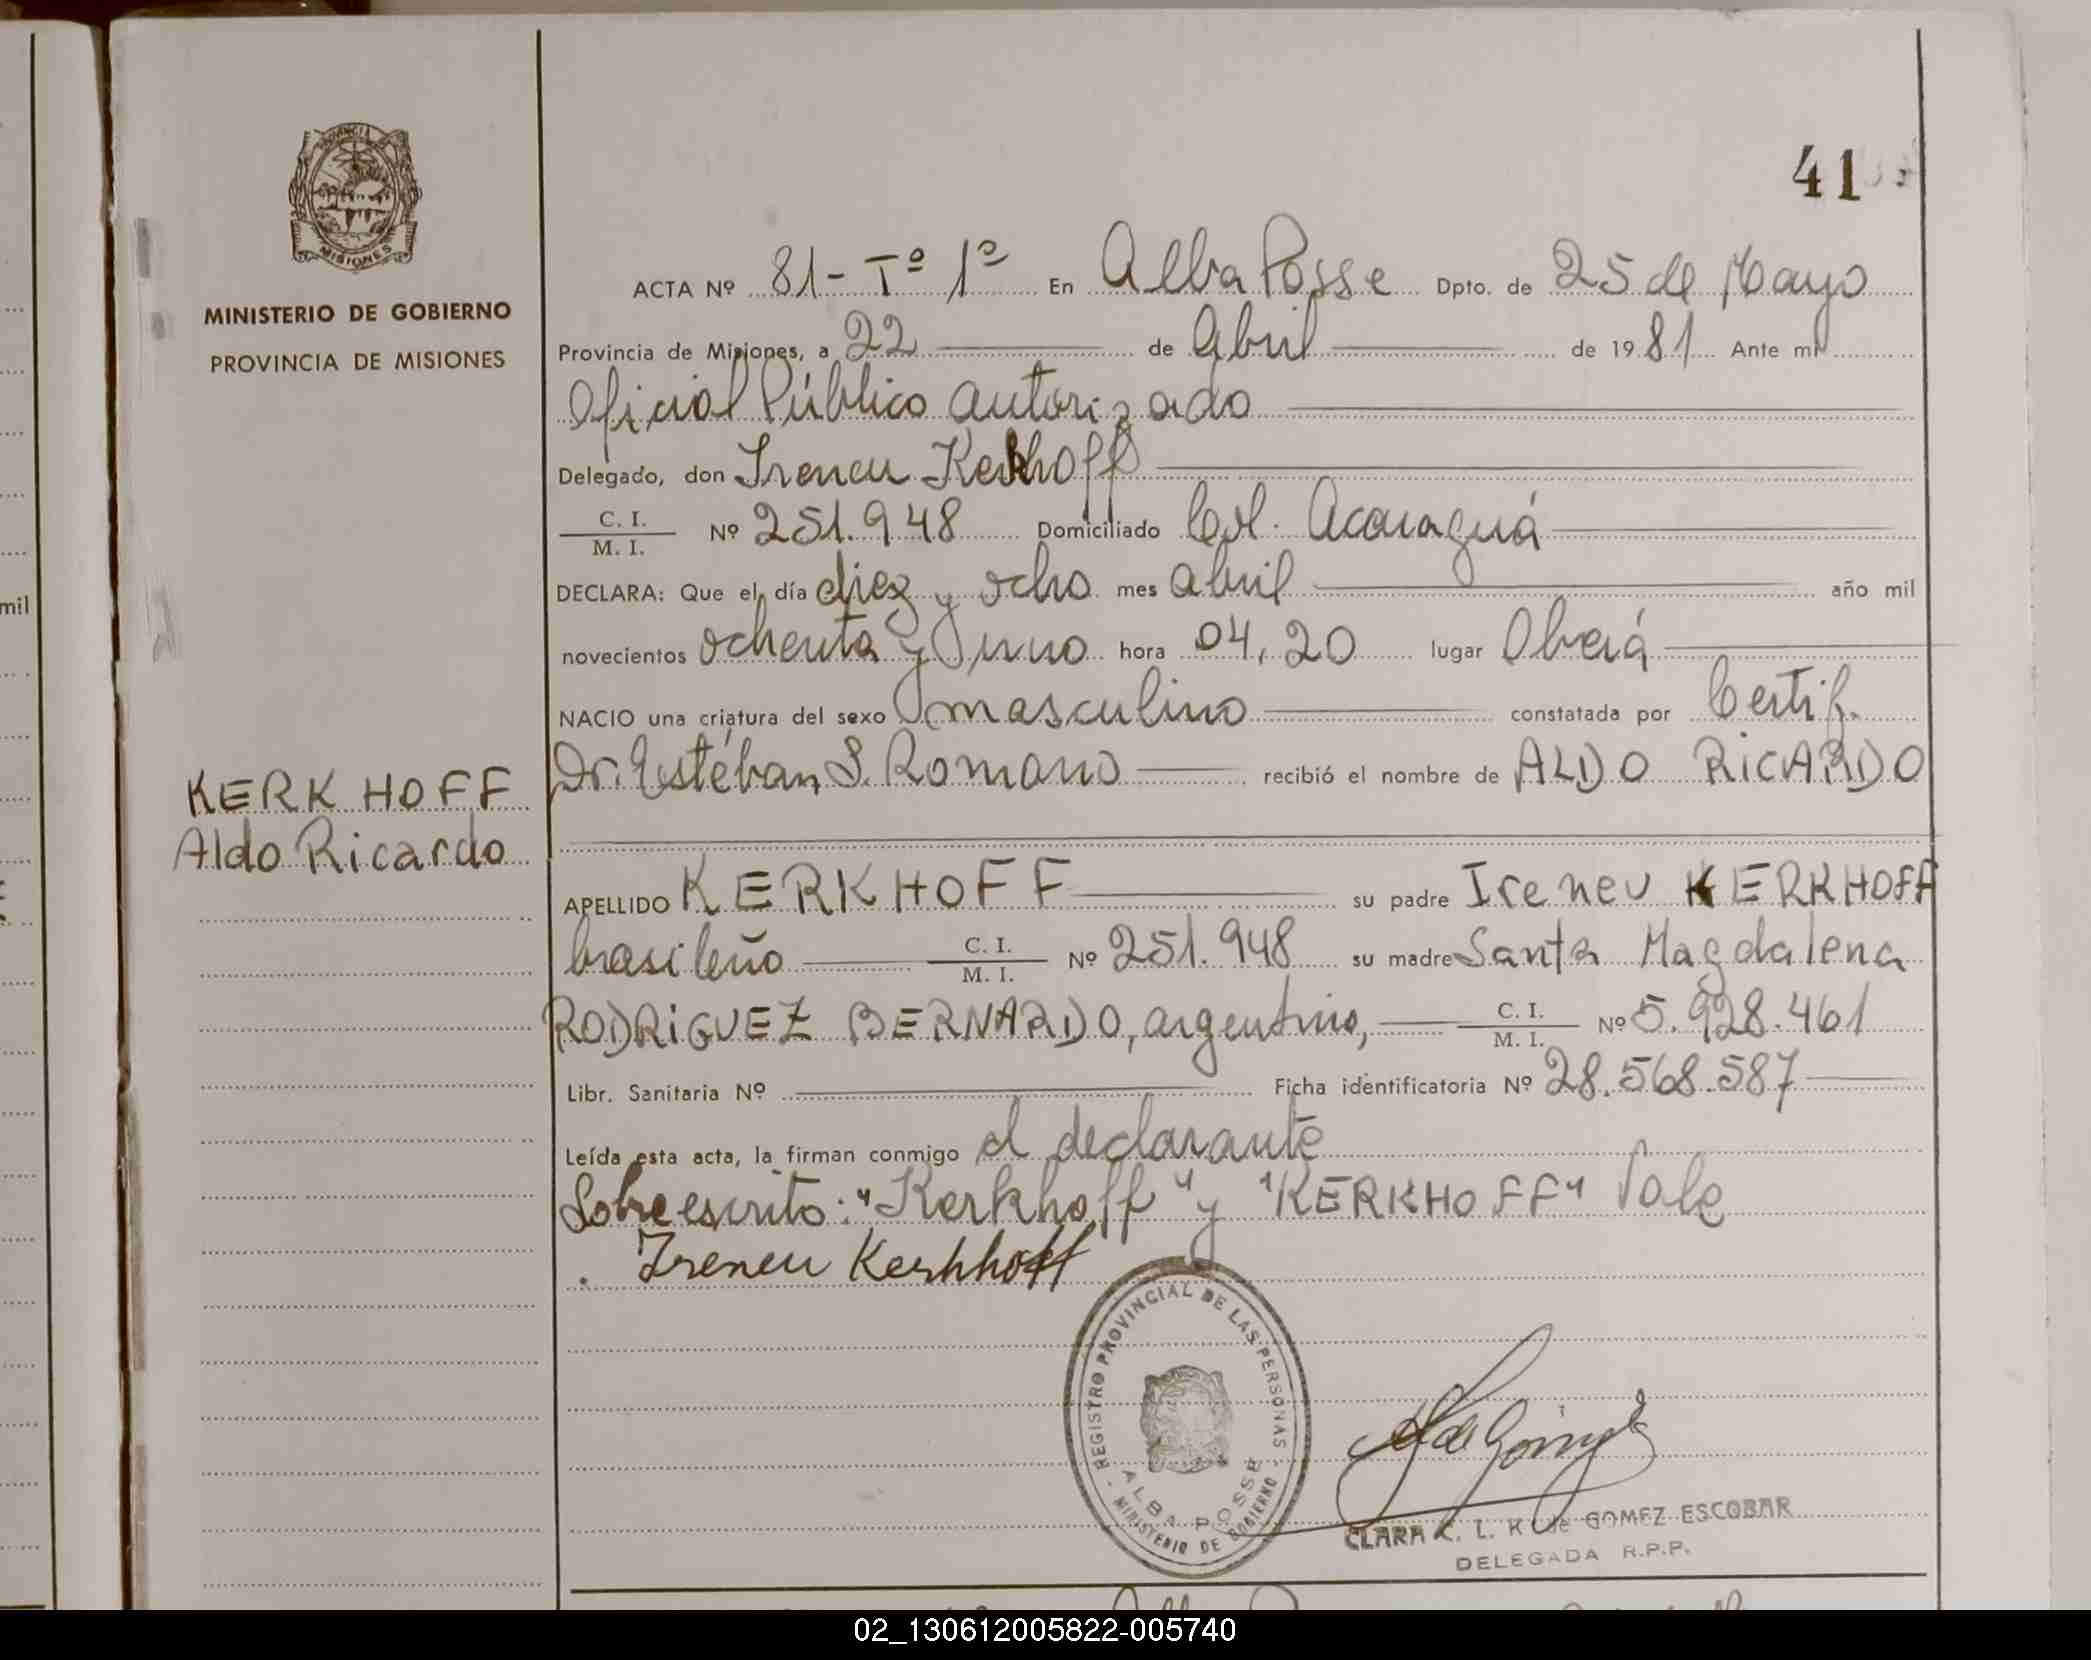 41
ACTA Nº 81 - Tº 1º En Alba Posse Dpto. de 25 de Mayo
MINISTERIO DE GOBIERNO
PROVINCIA DE MISIONES
Provincia de Misiones, a 22 de Abril de 1981 Ante mí
Oficial Público autorizado
Delegado, don Ireneu Kerkhoff
C. I.
M. I. Nº 251.948 Domiciliado Col. Acaraguá
DECLARA: Que el día diez y ocho mes abril año mil
novecientos ochenta y uno hora 04,20 lugar Oberá
NACIO una criatura del sexo masculino constatada por Certif.
Dr. Estéban S. Romano recibió el nombre de ALDO RICARDO
KERKHOFF
Aldo Ricardo
APELLIDO KERKHOFF su padre Ireneu KERKHOFF
brasileño C. I.
M. I. Nº 251.948 su madre Santa Magdalena
RODRIGUEZ BERNARDO, argentina, C. I.
M. I. Nº 5.928.461
Libr. Sanitaria Nº Ficha identificatoria Nº 28.568.587
Leída esta acta, la firman conmigo el declarante
Sobreescrito: "Kerkhoff" y "KERKHOFF" Vale
Ireneu Kerkhoff
REGISTRO PROVINCIAL DE LAS PERSONAS
ALBA POSSE
MINISTERIO DE GOBIERNO
CLARA C. L. K de GOMEZ ESCOBAR
DELEGADA R.P.P.
02_130612005822-005740